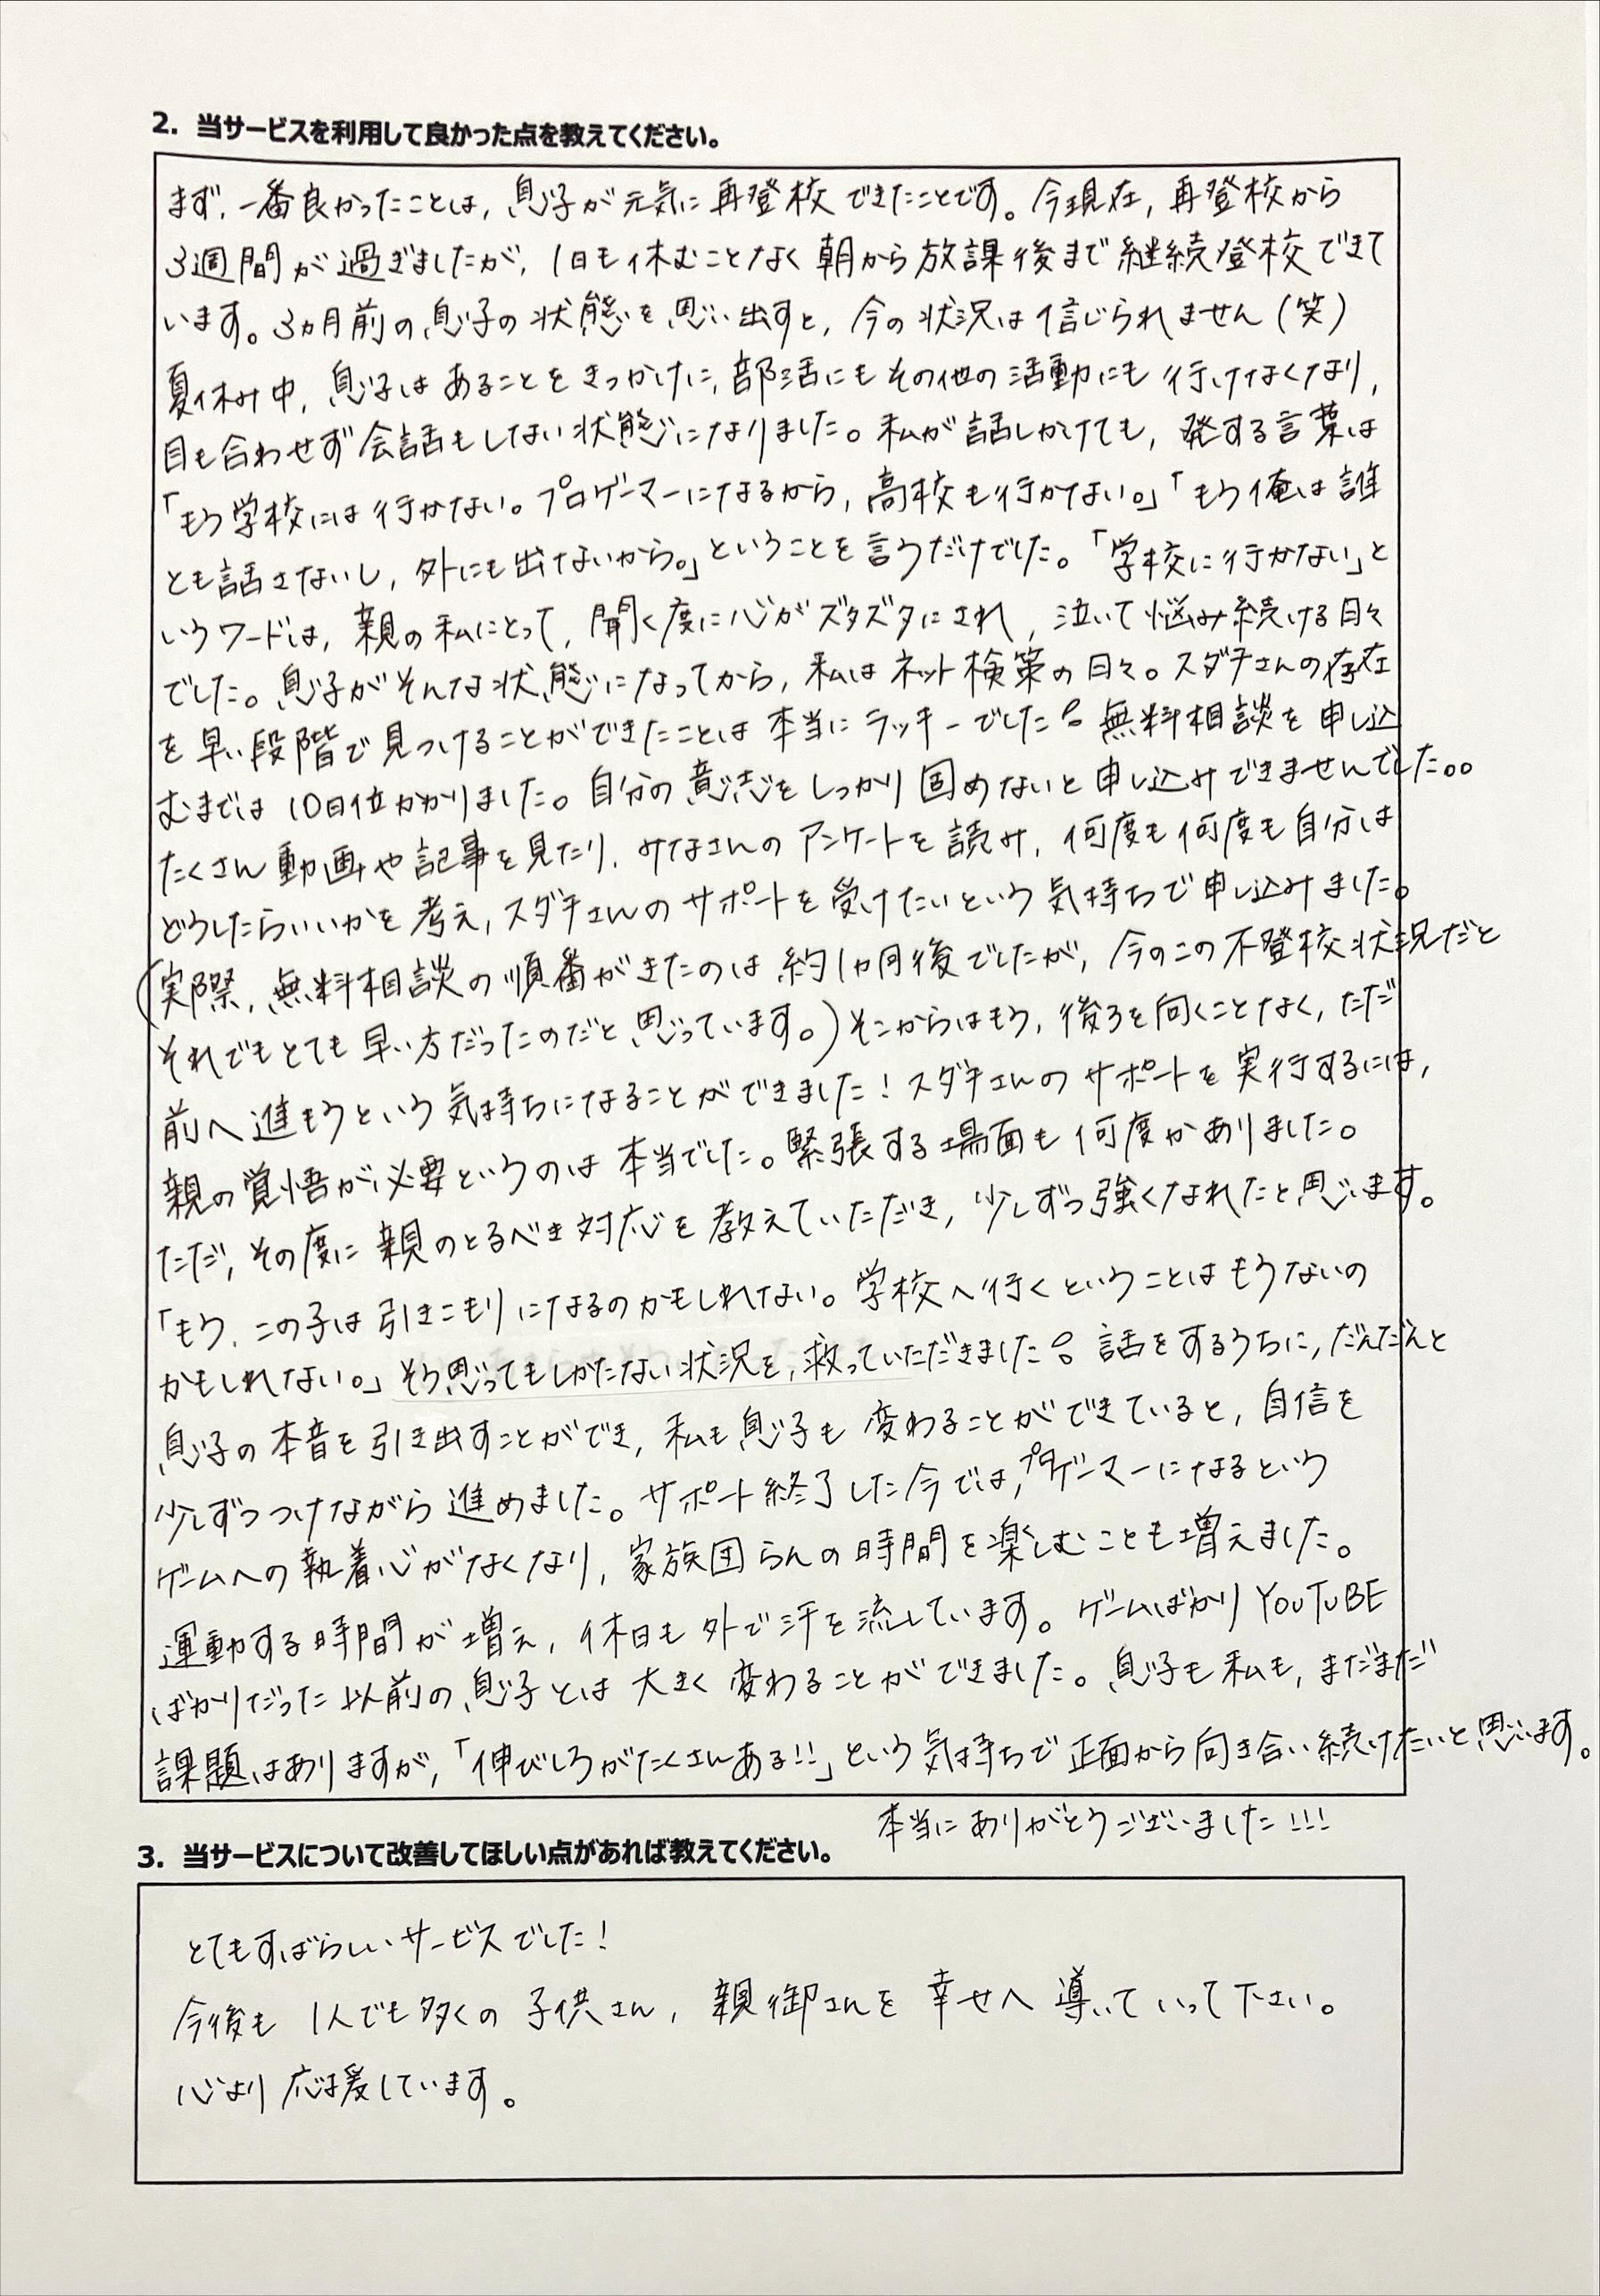 2. 当サービスを利用して良かった点を教えてください。
まず、一番良かったことは、息子が元気に再登校できたことです。今現在、再登校から
3週間が過ぎましたが、1日も休むことなく朝から放課後まで継続登校できて
います。3ヵ月前の息子の状態を思い出すと、今の状況は信じられません(笑)
夏休み中、息子はあることをきっかけに、部活にもその他の活動にも行けなくなり、
目も合わせず会話もしない状態になりました。私が話しかけても、発する言葉は
「もう学校には行かない。プロゲーマーになるから、高校も行かない。」「もう俺は誰
とも話さないし、外にも出ないから。」ということを言うだけでした。「学校に行かない」と
いうワードは、親の私にとって、聞く度に心がズタズタにされ、泣いて悩み続ける日々
でした。息子がそんな状態になってから、私はネット検策の日々。スダチさんの存在
を早い段階で見つけることができたことは本当にラッキーでした!。無料相談を申し込
むまでは10日位かかりました。自分の意志をしっかり固めないと申し込みできませんでした。。
たくさん動画や記事を見たり、みなさんのアンケートを読み、何度も何度も自分は
どうしたらいいかを考え、スダチさんのサポートを受けたいという気持ちで申し込みました。
(実際、無料相談の順番がきたのは約1ヵ月後でしたが、今のこの不登校状況だと
それでもとても早い方だったのだと思っています。)そこからはもう、後ろを向くことなく、ただ
前へ進もうという気持ちになることができました!スダチさんのサポートを実行するには、
親の覚悟が必要というのは本当でした。緊張する場面も何度かありました。
ただ、その度に親のとるべき対応を教えていただき、少しずつ強くなれたと思います。
「もう、この子は引きこもりになるのかもしれない。学校へ行くということはもうないの
かもしれない。」そう思ってもしかたない状況を、救っていただきました!。話をするうちに、だんだんと
息子の本音を引き出すことができ、私も息子も変わることができていると、自信を
少しずつつけながら進めました。サポート終了した今では、プロゲーマーになるという
ゲームへの執着心がなくなり、家族団らんの時間を楽しむことも増えました。
運動する時間が増え、休日も外で汗を流しています。ゲームばかりYOUTUBE
ばかりだった以前の息子とは大きく変わることができました。息子も私も、まだまだ
課題はありますが、「伸びしろがたくさんある!!」という気持ちで正面から向き合い続けたいと思います。
本当にありがとうございました!!!
3. 当サービスについて改善してほしい点があれば教えてください。
とてもすばらしいサービスでした!
今後も1人でも多くの子供さん、親御さんを幸せへ導いていって下さい。
心より応援しています。